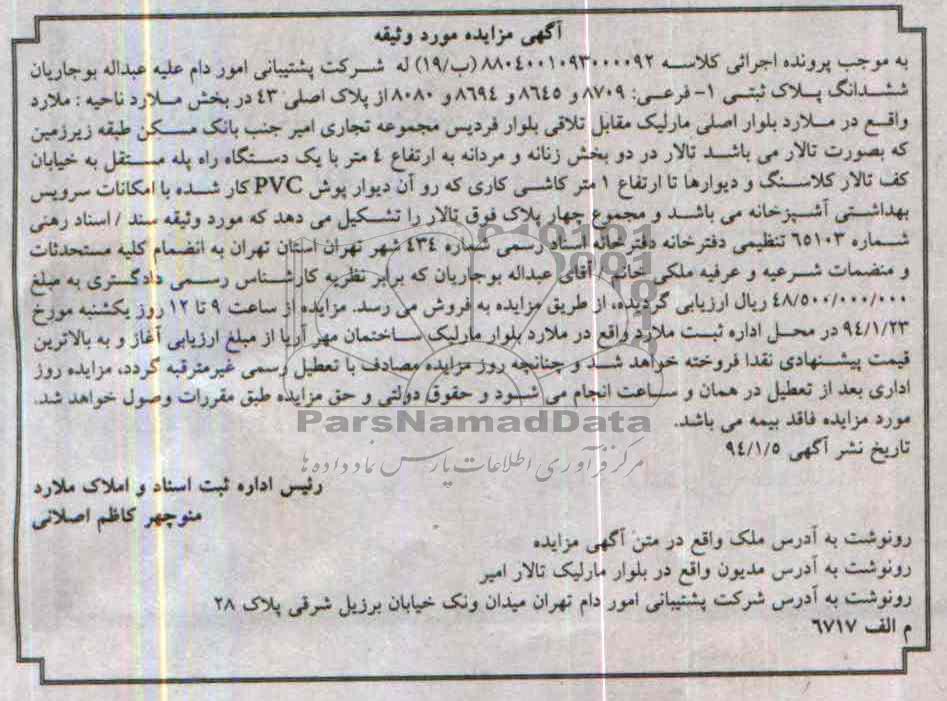 آگهی مزایده مورد وثیقه
به موجب پرونده اجرائی کلاسه ۸۸۰۴۰۰۱۰۹۳۰۰۰۰۹۲ (ب/۱۹) له شرکت پشتیبانی امور دام علیه عبداله بوجاریان
ششدانگ پلاک ثبتی ۱- فرعی: ۸۷۰۹ و ۸۶۴۵ و ۸۶۹۴ و ۸۰۸۰ از پلاک اصلی ۴۳ در بخش ملارد ناحیه : ملارد
واقع در ملارد بلوار اصلی مارلیک مقابل تلاقی بلوار فردیس مجموعه تجاری امیر جنب بانک مسکن طبقه زیرزمین
که بصورت تالار می باشد تالار در دو بخش زنانه و مردانه به ارتفاع ٤ متر با یک دستگاه راه پله مستقل به خیابان
کف تالار کلاسنگ و دیوارها تا ارتفاع ۱ متر کاشی کاری که رو آن دیوار پوش PVC کار شده با امکانات سرویس
بهداشتی آشپزخانه می باشد و مجموع چهار پلاک فوق تالار را تشکیل می دهد که مورد وثیقه سند / اسناد رهنی
شماره ۶۵۱۰۳ تنظیمی دفترخانه دفترخانه اسناد رسمی شماره ٤٣٤ شهر تهران استان تهران به انضمام کلیه مستحدثات
و منضمات شرعیه و عرفیه ملکی خانم / آقای عبداله بوجاریان که برابر نظریه کارشناس رسمی دادگستری به مبلغ
٤٨/٥٠٠/٠٠٠/٠٠٠ ریال ارزیابی گردیده، از طریق مزایده به فروش می رسد. مزایده از ساعت ۹ تا ۱۲ روز یکشنبه مورخ
۹٤/۱/۲۳ در محل اداره ثبت ملارد واقع در ملارد بلوار مارلیک ساختمان مهر آریا از مبلغ ارزیابی آغاز و به بالاترین
قیمت پیشنهادی نقدا فروخته خواهد شد و چنانچه روز مزایده مصادف با تعطیل رسمی غیرمترقبه گردد، مزایده روز
اداری بعد از تعطیل در همان و ساعت انجام می شود و حقوق دولتی و حق مزایده طبق مقررات وصول خواهد شد.
مورد مزایده فاقد بیمه می باشد.
ParsNamadData
تاریخ نشر آگهی ۹٤/۱/۵
مرکز فرآوری اطلاعات پارس نماد داده ها
رئیس اداره ثبت اسناد و املاک ملارد
منوچهر کاظم اصلانی
رونوشت به آدرس ملک واقع در متن آگهی مزایده
رونوشت به آدرس مدیون واقع در بلوار مارلیک تالار امیر
رونوشت به آدرس شرکت پشتیبانی امور دام تهران میدان ونک خیابان برزیل شرقی پلاک ۲۸
م الف ۶۷۱۷